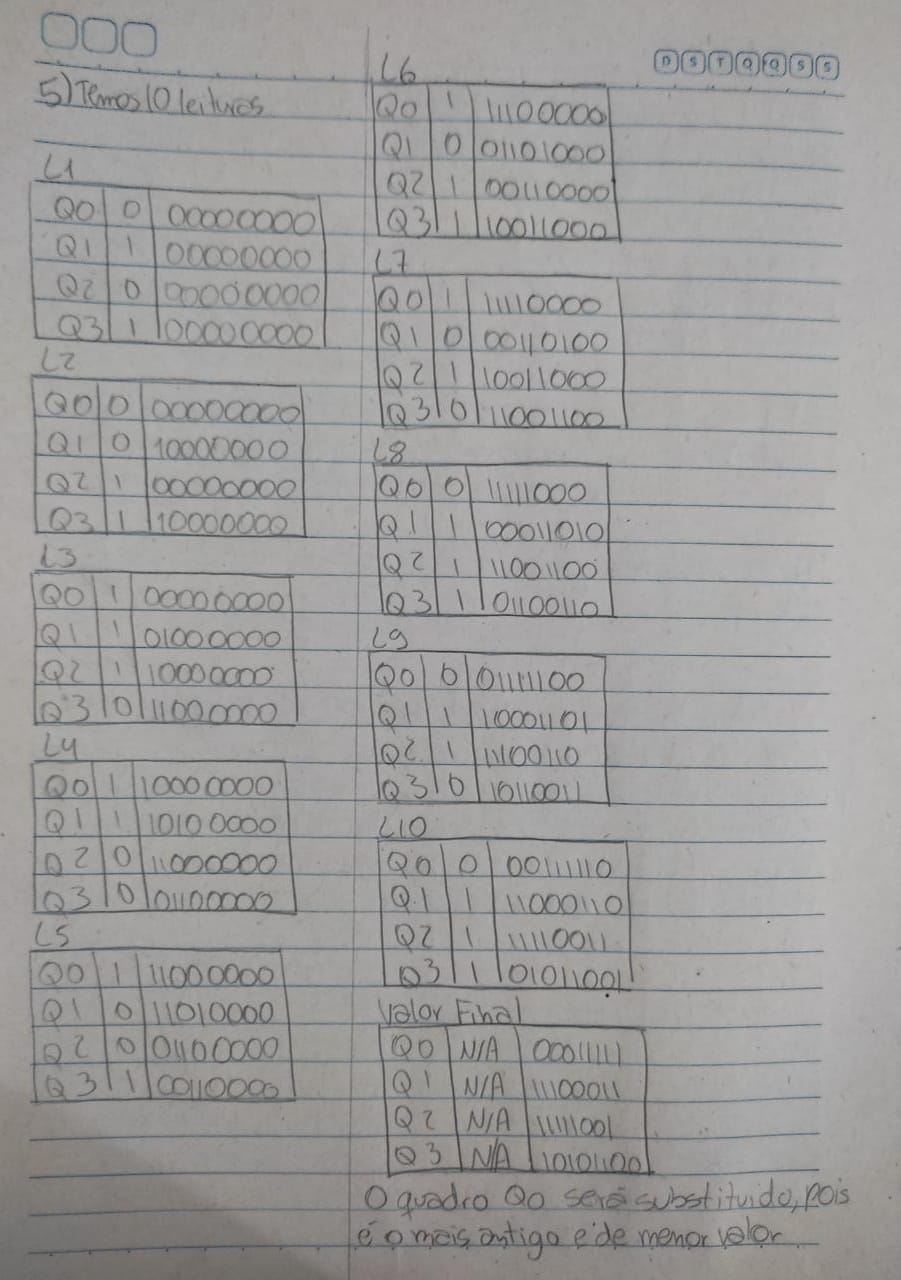 5) Temos 10 leituras
L1
Q0 0 00000000
Q1 1 00000000
Q2 0 00000000
Q3 1 00000000
L2
Q0 0 00000000
Q1 0 10000000
Q2 1 00000000
Q3 1 10000000
L3
Q0 1 00000000
Q1 1 01000000
Q2 1 10000000
Q3 0 11000000
L4
Q0 1 10000000
Q1 1 10100000
Q2 0 11000000
Q3 0 01100000
L5
Q0 1 11000000
Q1 0 11010000
Q2 0 01100000
Q3 1 00110000
D S T Q Q S S
L6
Q0 1 11100000
Q1 0 01101000
Q2 1 00110000
Q3 1 10011000
L7
Q0 1 11110000
Q1 0 00110100
Q2 1 10011000
Q3 0 11001100
L8
Q0 0 11111000
Q1 1 00011010
Q2 1 11001100
Q3 1 01100110
L9
Q0 0 01111100
Q1 1 10001101
Q2 1 11100110
Q3 0 10110011
L10
Q0 0 00111110
Q1 1 11000110
Q2 1 11110011
Q3 1 01011001
Valor Final
Q0 N/A 00011111
Q1 N/A 11100011
Q2 N/A 11111001
Q3 N/A 10101100
O quadro Q0 será substituido, pois
é o mais antigo e de menor valor